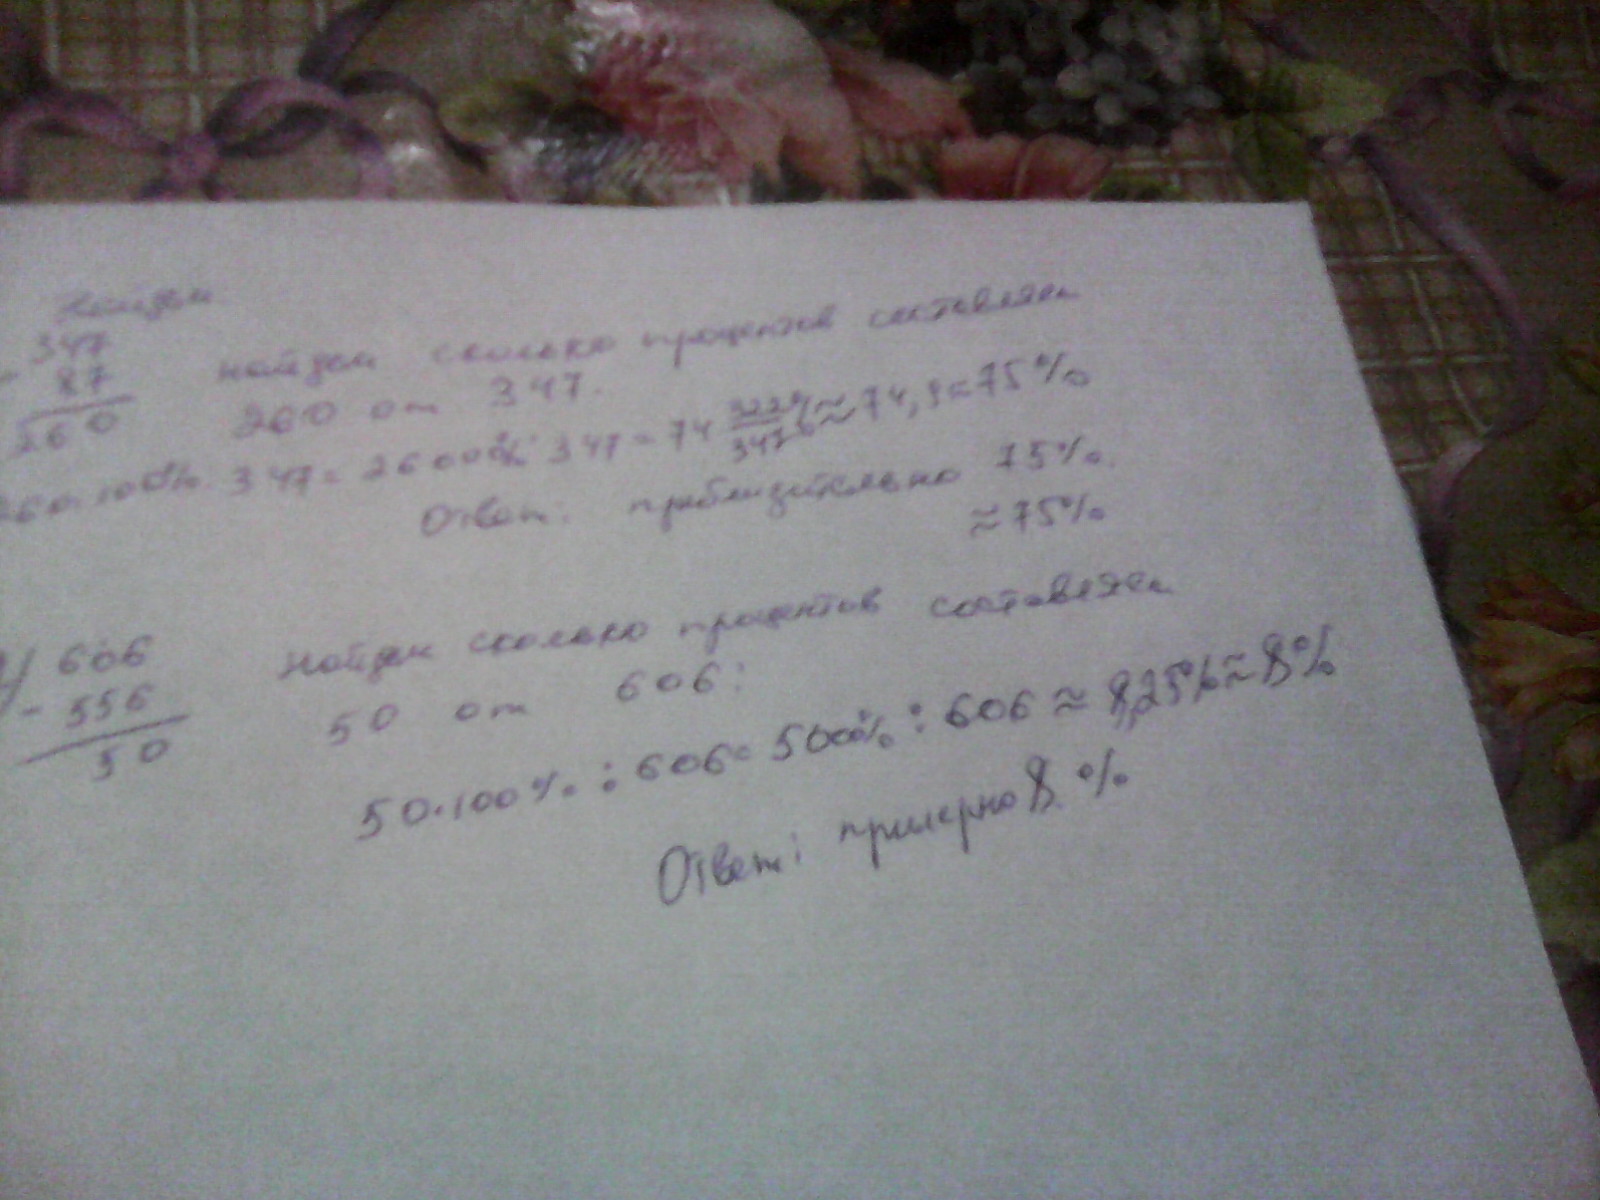 Найдем
347
- 87
260
Найдем сколько процентов составляем
260 от 347.
260·100%: 347= 26000%: 347= 74 322/347 % ≈ 74,9≈75%
Ответ: приблизительно 75%.
≈75%
606
- 556
50
Найдем сколько процентов составляем
50 от 606:
50·100% : 606= 5000% : 606 ≈ 8,25%≈8%
Ответ: примерно 8 %